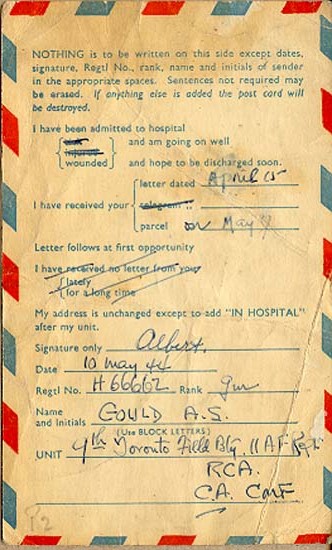 NOTHING is to be written on this side except dates,
signature, Regtl No., rank, name and initials of sender
in the appropriate spaces. Sentences not required may
be erased. If anything else is added the post card will
be destroyed.
I have been admitted to hospital
sick
injured
and am going on well
wounded
and hope to be discharged soon.
letter dated April 15
I have received your
telegram ,,
parcel on May 9
Letter follows at first opportunity
I have received no letter from you
lately
for a long time
My address is unchanged except to add "IN HOSPITAL"
after my unit.
Signature only Albert.
Date 10 May 44
Regtl No. H 66662 Rank Gnr
Name
and Initials GOULD A.S.
(Use BLOCK LETTERS)
UNIT 9th Toronto Field Bty. 11 A.F. Reg
RCA.
C.A. CMF
12